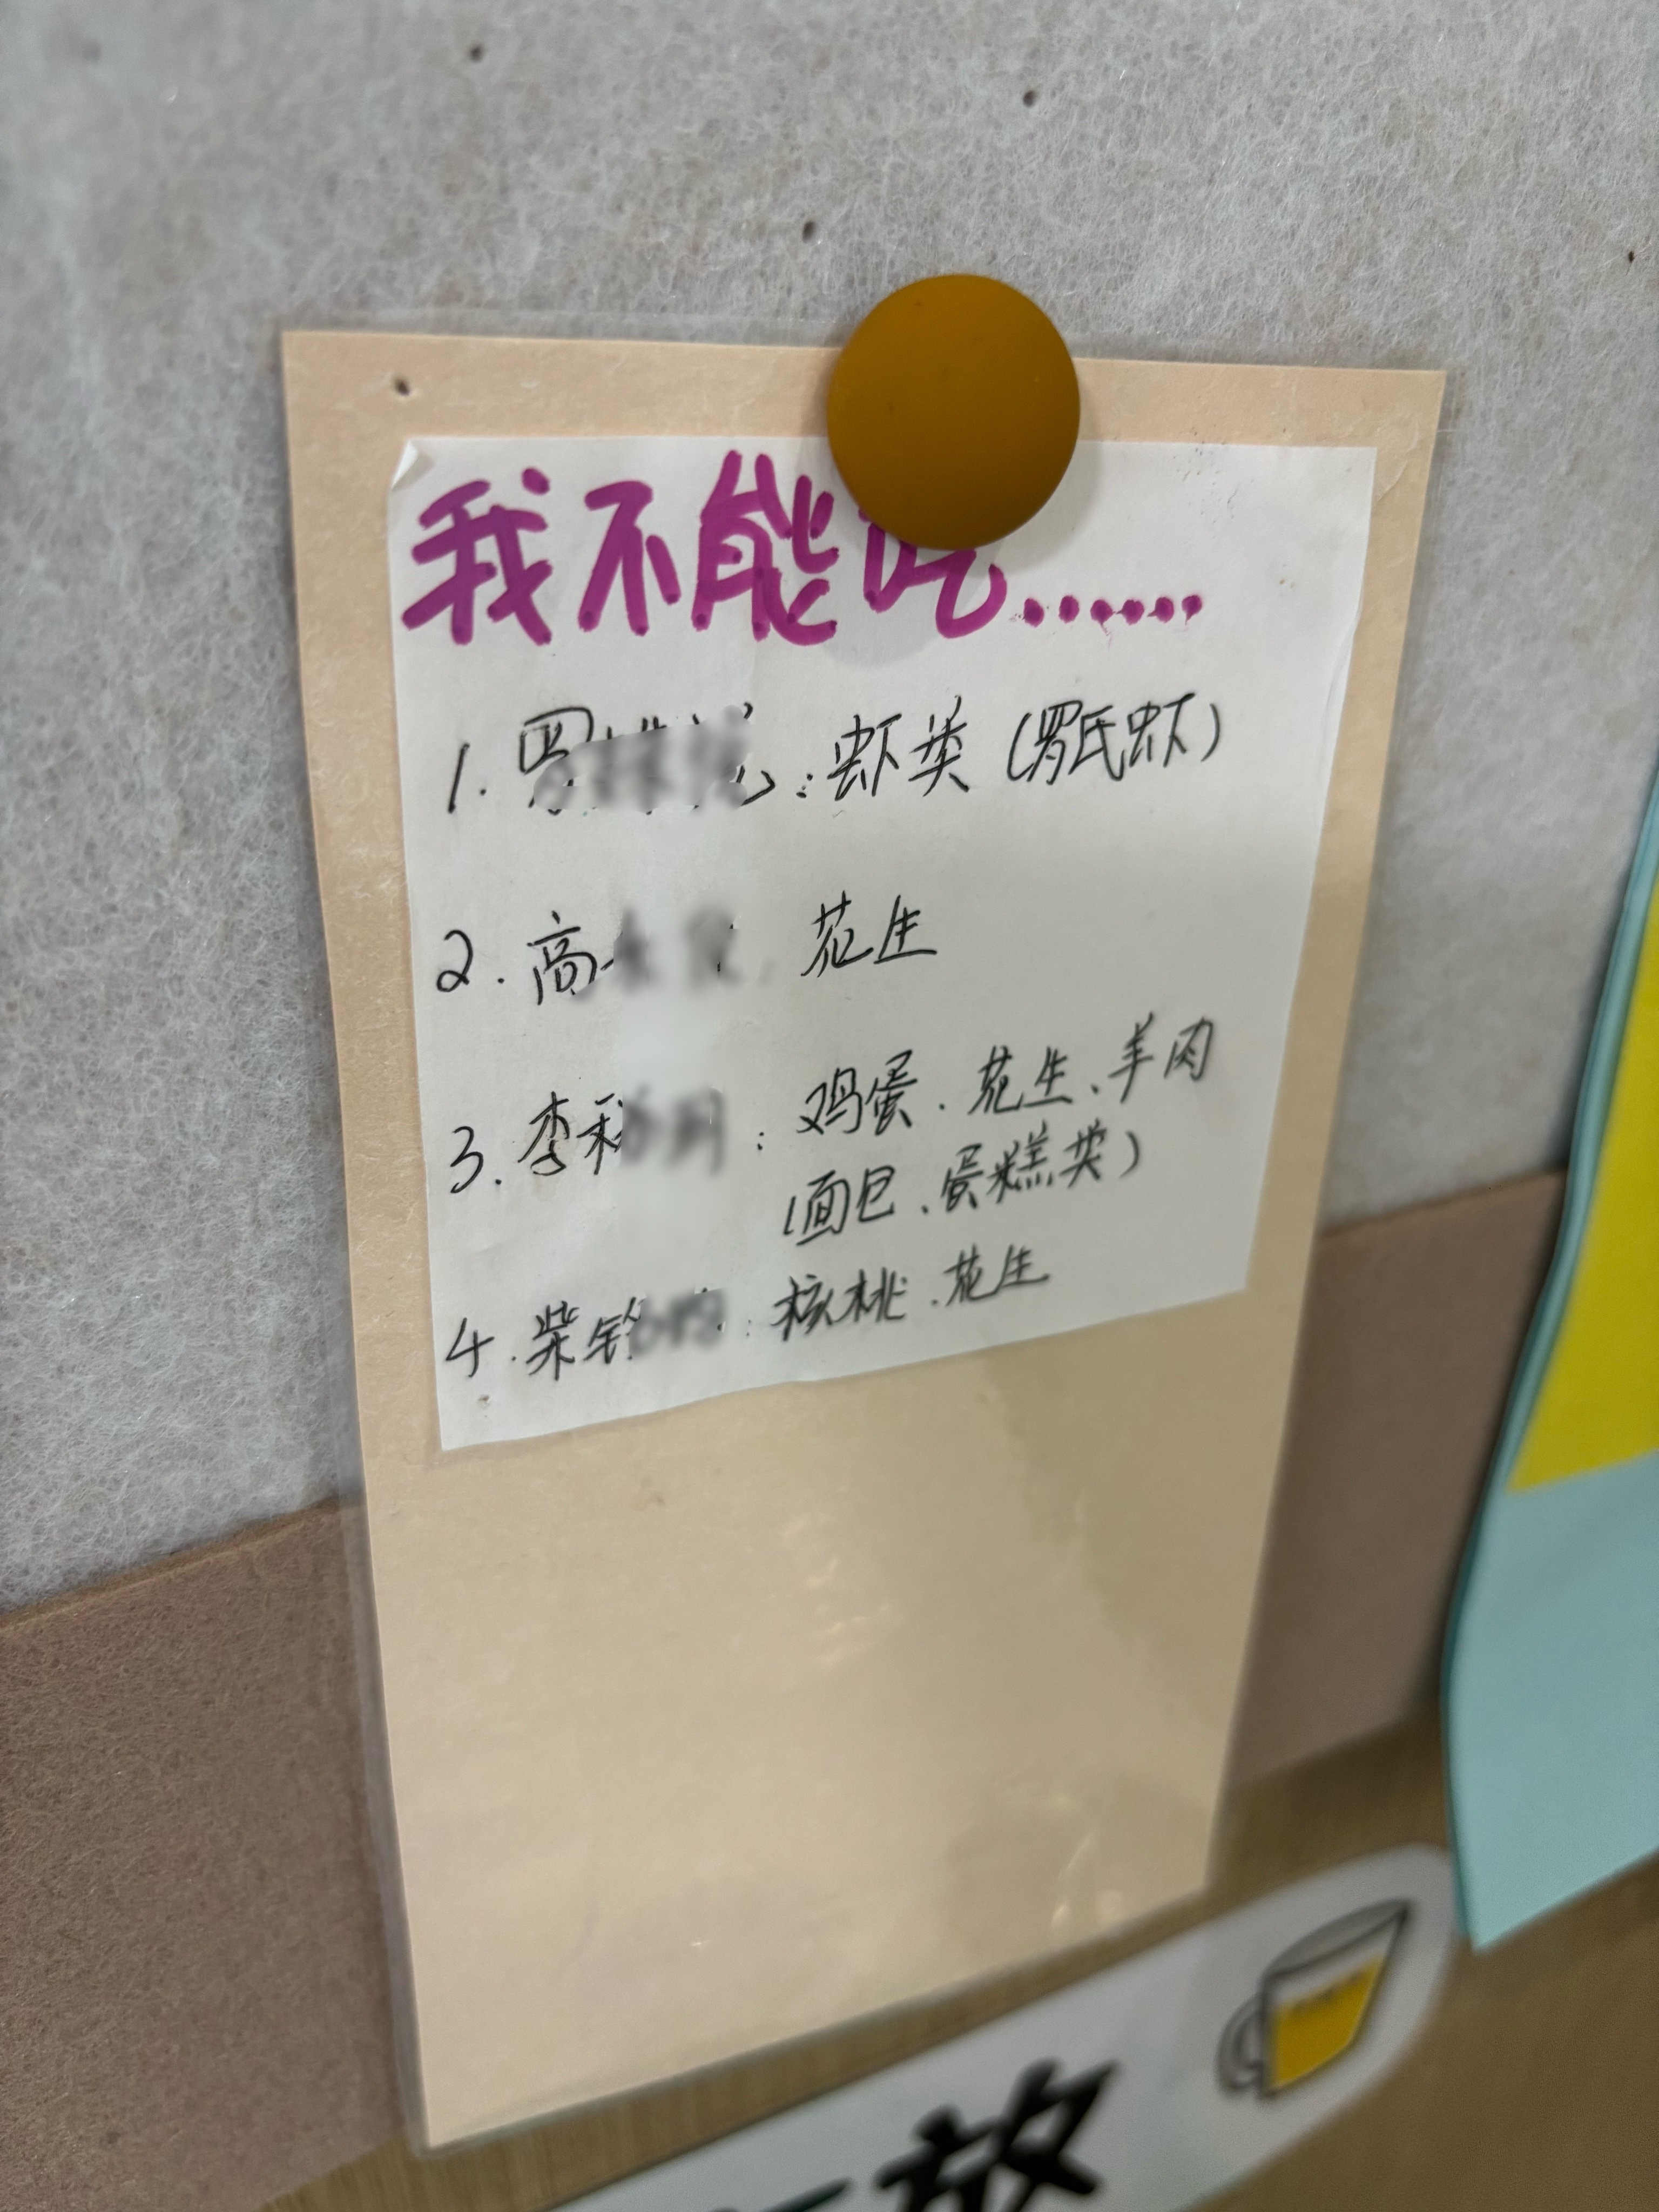 我不能吃……
1. 罗 : 虾类 (罗氏虾)
2. 高 花生
3. 李 : 鸡蛋、花生、羊肉
(面包、蛋糕类)
4. 柴 : 核桃、花生
放